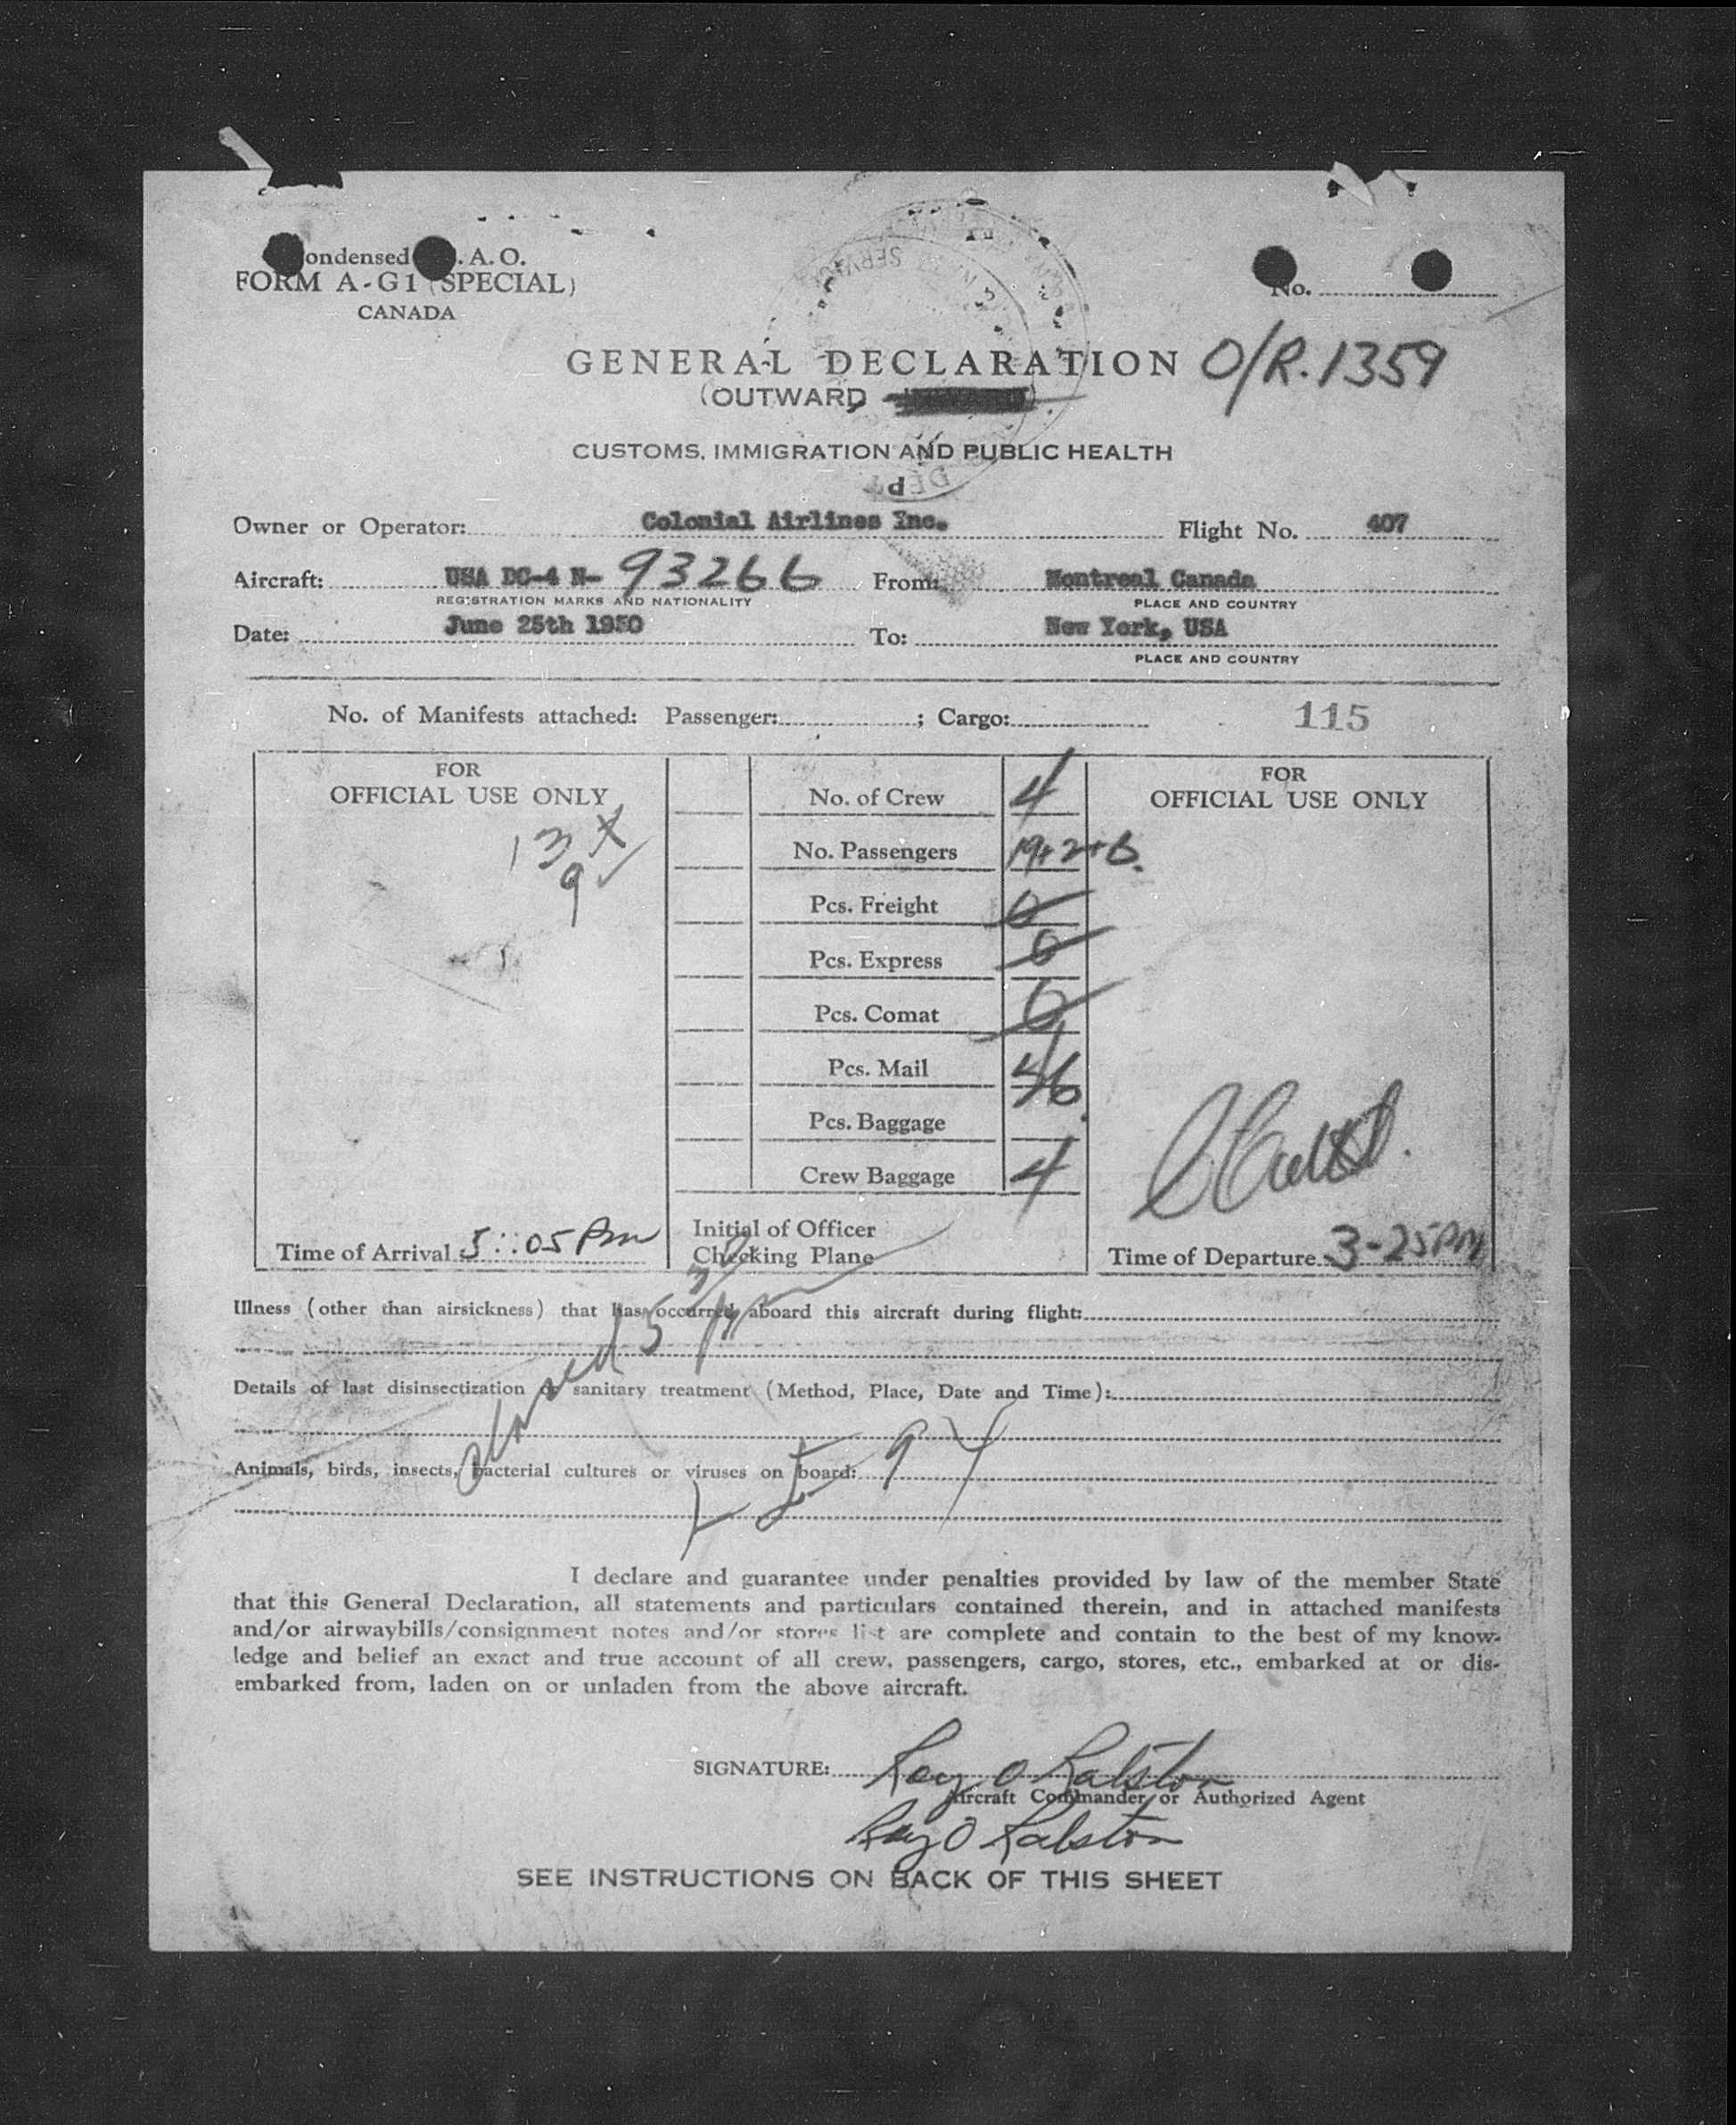 ondensed . A. O.
FORM A-G1 (SPECIAL)
CANADA
No.
GENERAL DECLARATION O/R.1359
(OUTWARD
CUSTOMS, IMMIGRATION AND PUBLIC HEALTH
Owner or Operator: Colonial Airlines Inc. Flight No. 407
Aircraft: USA DC-4 N- 93266 From: Montreal Canada
REGISTRATION MARKS AND NATIONALITY PLACE AND COUNTRY
Date: June 25th 1950 To: New York, USA
PLACE AND COUNTRY
No. of Manifests attached: Passenger: ; Cargo: 115
FOR
OFFICIAL USE ONLY
13 X
9 ✓
No. of Crew 4
No. Passengers 19+2+6
Pcs. Freight 0
Pcs. Express 0
Pcs. Comat 0
Pcs. Mail
Pcs. Baggage
Crew Baggage 4
FOR
OFFICIAL USE ONLY
Time of Arrival 5:05 Pm
Initial of Officer
Checking Plane
Time of Departure 3-25PM
Illness (other than airsickness) that has occurred aboard this aircraft during flight:
Details of last disinsectization or sanitary treatment (Method, Place, Date and Time):
Animals, birds, insects, bacterial cultures or viruses on board:
I declare and guarantee under penalties provided by law of the member State
that this General Declaration, all statements and particulars contained therein, and in attached manifests
and/or airwaybills/consignment notes and/or stores list are complete and contain to the best of my know-
ledge and belief an exact and true account of all crew, passengers, cargo, stores, etc., embarked at or dis-
embarked from, laden on or unladen from the above aircraft.
SIGNATURE: Ray O Ralston
Aircraft Commander or Authorized Agent
Ray O Ralston
SEE INSTRUCTIONS ON BACK OF THIS SHEET